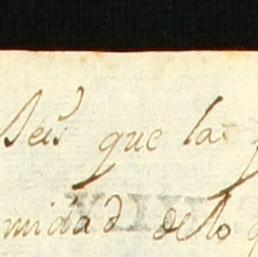 Seis que la
midad de lo